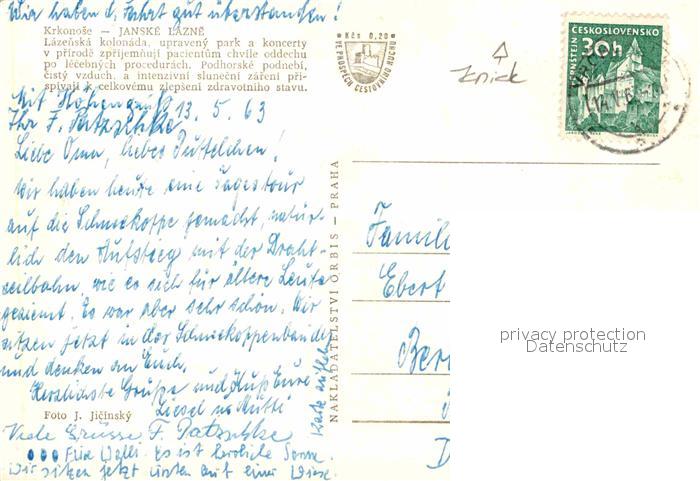 Wir haben d. Fahrt gut überstanden!
Krkonoše – JANSKÉ LÁZNĚ
Lázeňská kolonáda, upravený park a koncerty
v přírodě zpříjemňují pacientům chvíle oddechu
po léčebných procedurách. Podhorské podnebí,
čistý vzduch, a intenzivní sluneční záření při-
spívají k celkovému zlepšení zdravotního stavu.
Mit 13. 5. 63
Ihr F. Patzschke
Liebe Oma, liebes
Wir haben heute eine Tagestour
auf die Schneekoppe gemacht, natür-
lich den Aufstieg mit der Draht-
seilbahn, wie es sich für ältere Leute
geziemt. Es war aber sehr schön. Wir
sitzen jetzt in der Schneekoppenbaude
und denken an Euch.
Herzlichste Grüße und Kuß Eure
Liesel u. Mutti
Foto J. Jičínský
Viele Grüsse F. Patzschke
Es ist herrliche Sonne.
Wir sitzen jetzt unten auf einer Wiese.
Karte aufheben
NAKLADATELSTVÍ ORBIS – PRAHA
Kčs 0,20
VE PROSPĚCH CESTOVNÍHO RUCHU
Knick
ČESKOSLOVENSKO
30h
PERNŠTEJN
Famil
Ebert
Ber
privacy protection
Datenschutz